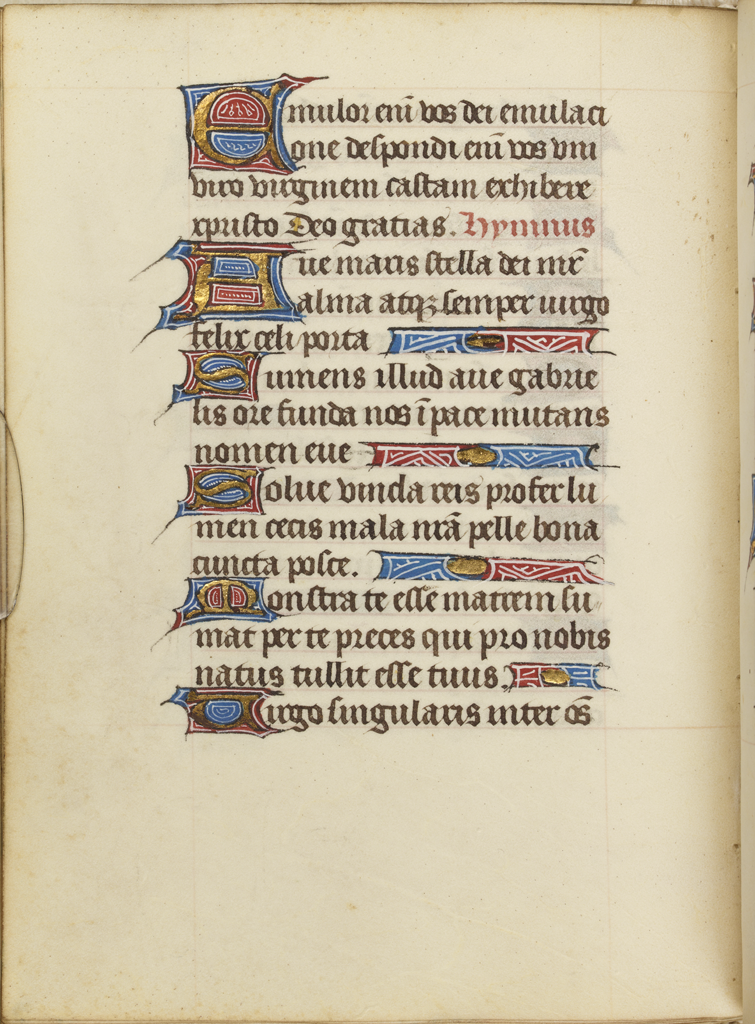 Emulor eni̅ vos dei emulaci
one despondi eni̅ vos vni
viro virginem castam exhibere
xpristo Deo gratias. Hymnus
Aue maris stella dei mr̅
alma atqꝫ semper uirgo
felix celi porta
Sumens illud aue gabrie
lis ore funda nos i̅ pace mutans
nomen eue
Solue vincla reis profer lu
men cecis mala nr̅a pelle bona
cuncta posce.
Monstra te esse matrem su
mat per te preces qui pro nobis
natus tullit esse tuus.
Virgo singularis inter os̅